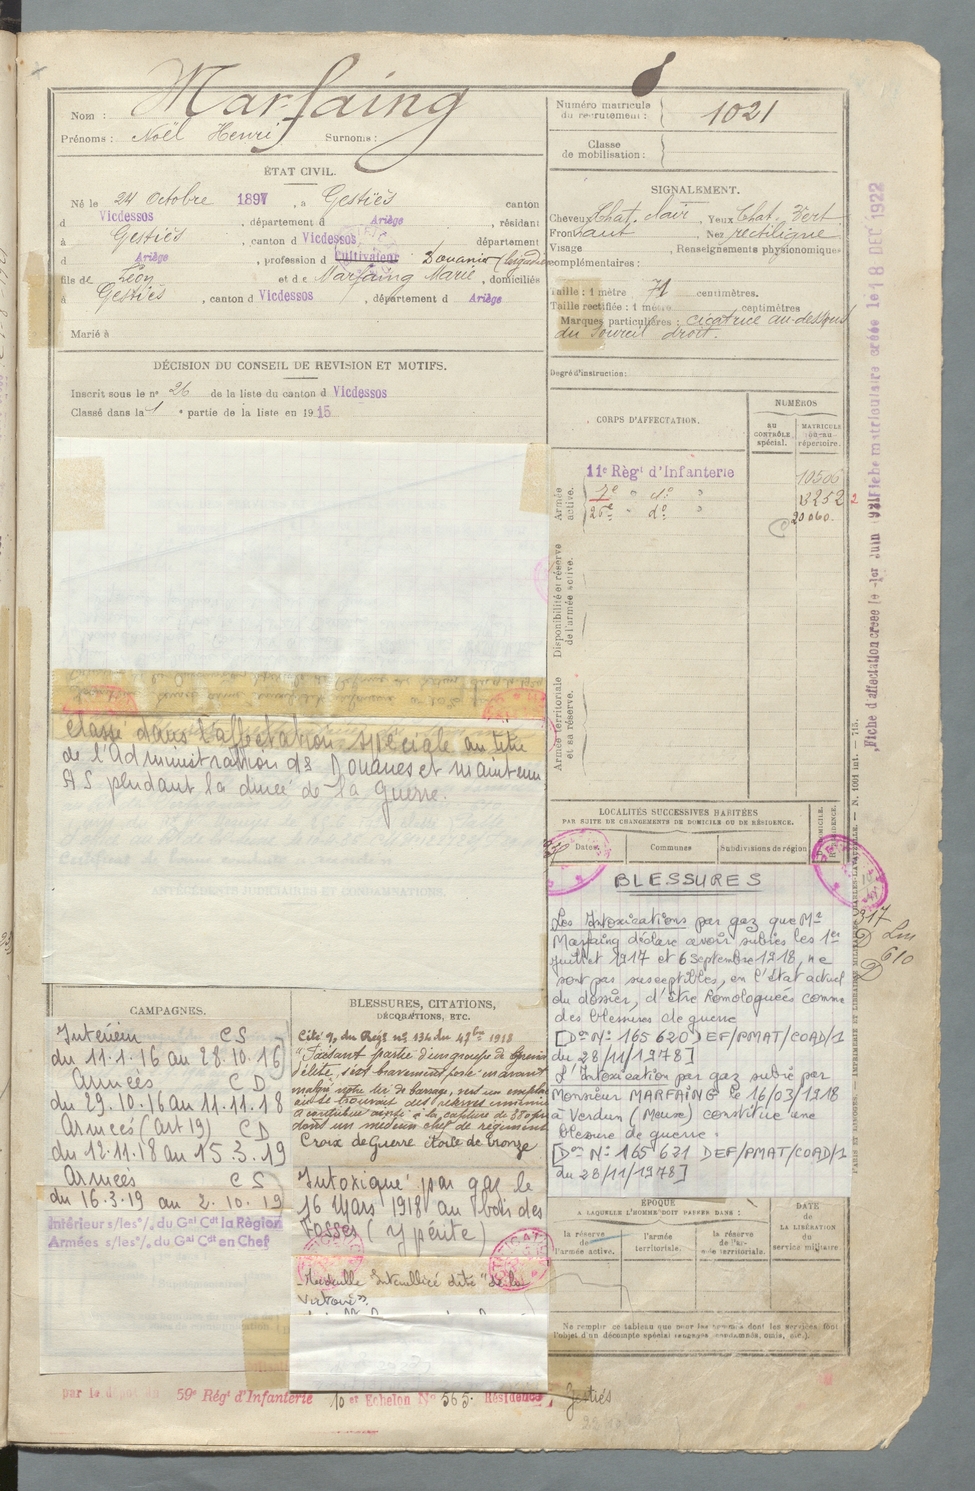 Nom : Marfaing
Prénoms : Noël Henri Surnoms :
ÉTAT CIVIL.
Né le 24 Octobre 1897, à Gestiès canton
d Vicdessos, département d Ariège, résidant
à Gestiès, canton d Vicdessos, département
d Ariège, profession d Cultivateur Douanier
fils de Léon et de Marfaing Marie, domiciliés
à Gestiès, canton d Vicdessos, département d Ariège
Marié à
DÉCISION DU CONSEIL DE REVISION ET MOTIFS.
Inscrit sous le n° 26 de la liste du canton d Vicdessos
Classé dans la 1 e partie de la liste en 1915
Classé dans l'affectation spéciale au titre
de l'Administration des Douanes et maintenu
AS pendant la durée de la Guerre.
ANTÉCÉDENTS JUDICIAIRES ET CONDAMNATIONS.
CAMPAGNES.
Intérieur CS
du 11.1.16 au 28.10.16
Armées CD
du 29.10.16 au 11.11.18
Armées (art 19) CD
du 12.11.18 au 15.3.19
Armées CS
du 16.3.19 au 2.10.19
Intérieur s/les °/. du Gal Cdt la Région
Armées s/les °/. du Gal Cdt en Chef
BLESSURES, CITATIONS,
DÉCORATIONS, ETC.
Cité % du Régt n° 134 du
"Faisant partie d'un groupe de
d'élite, s'est bravement porté en avant
malgré notre tir de barrage, vers un
où se trouvait des
a contribué ainsi à la capture de 380
dont un médecin chef de régiment
Croix de Guerre étoile de bronze
Intoxiqué par gaz le
16 Mars 1918 au bois des
Fosses (ypérite)
Médaille Interalliée dite "de la
Victoire".
par le dépôt du 59e Régt d'Infanterie 10 et Echelon N° 565. Résidence, Gestiès
Numéro matricule
du recrutement : 1021
Classe
de mobilisation :
SIGNALEMENT.
Cheveux Chat. Noir, Yeux Chat. Vert
Front haut, Nez rectiligne
Visage, Renseignements physionomiques
complémentaires :
Taille : 1 mètre 71 centimètres.
Taille rectifiée : 1 mètre centimètres
Marques particulières : cicatrice au-dessus
du sourcil droit.
Degré d'instruction :
CORPS D'AFFECTATION.
NUMÉROS
AU CONTRÔLE spécial.
MATRICULE ou au répertoire.
Armée active.
11e Régt d'Infanterie 10506
7e " do " 13252
26e " do " 20060.
Disponibilité et réserve de l'armée active.
Armée territoriale et sa réserve.
LOCALITÉS SUCCESSIVES HABITÉES
PAR SUITE DE CHANGEMENTS DE DOMICILE OU DE RÉSIDENCE.
Dates Communes Subdivisions de région
BLESSURES
Les Intoxications par gaz que Mr
Marfaing déclare avoir subies les 1er
juillet 1917 et 6 septembre 1918, ne
sont pas susceptibles, en l'état actuel
du dossier, d'être homologuées comme
des blessures de guerre
[Don N° 165 620 DEF/PMAT/COAD/1
du 28/11/1978]
L'Intoxication par gaz subie par
Monsieur MARFAING le 16/03/1918
à Verdun (Meuse) constitue une
blessure de guerre.
[Don N° 165 621 DEF/PMAT/COAD/1
du 28/11/1978]
ÉPOQUE
A LAQUELLE L'HOMME DOIT PASSER DANS :
la réserve de l'armée active.
l'armée territoriale.
la réserve de l'armée territoriale.
DATE de LA LIBÉRATION du service militaire.
Ne remplir ce tableau que pour les hommes dont les services font
l'objet d'un décompte spécial (engagés, condamnés, omis, etc.).
Fiche matriculaire créée le 18 DEC 1922
Fiche d'affectation créée le 1er Juin
PARIS ET LIMOGES. — IMPRIMERIE ET LIBRAIRIE MILITAIRES CHARLES-LAVAUZELLE. — N. 1001 int. — 715.
317
610